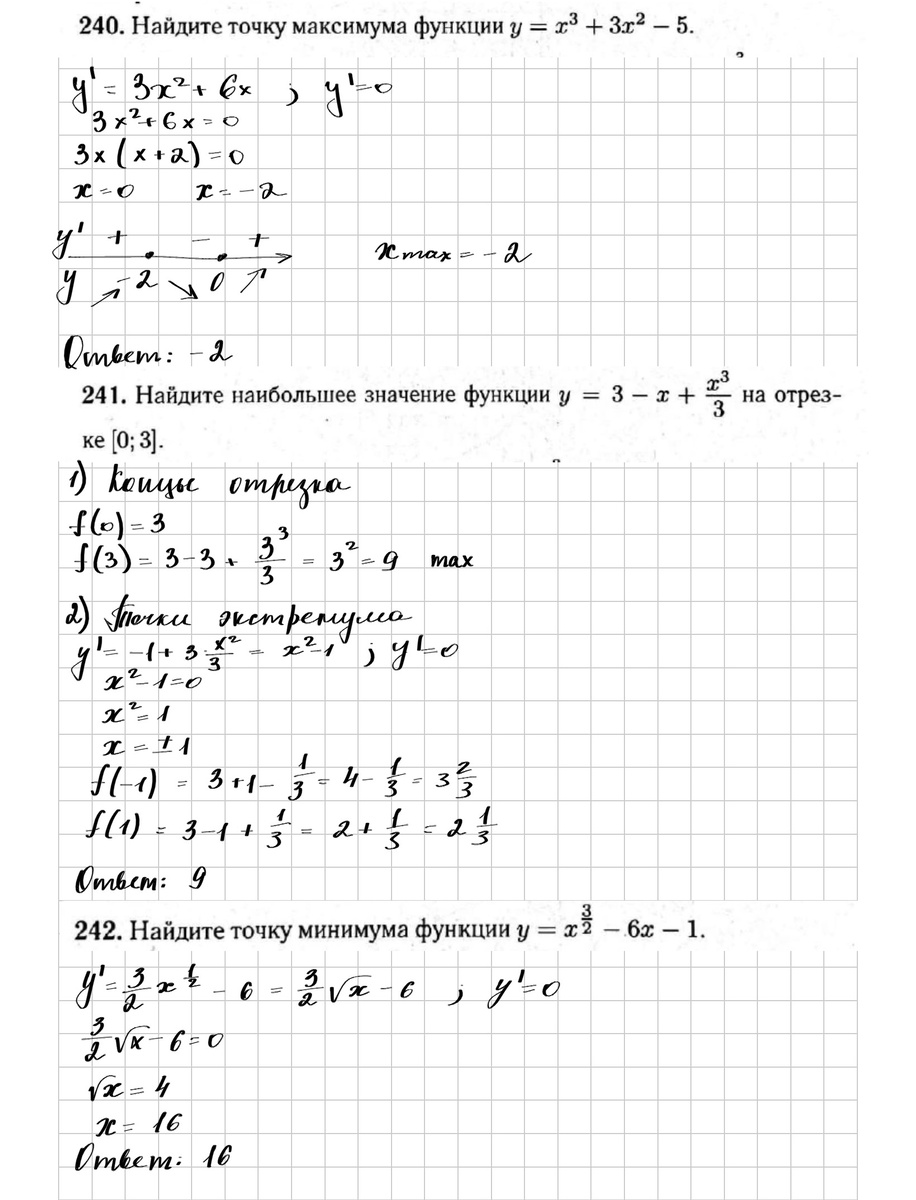 240. Найдите точку максимума функции y = x³ + 3x² − 5.
y' = 3x² + 6x ; y' = 0
3x² + 6x = 0
3x (x + 2) = 0
x = 0 x = −2
y' + − +
xmax = −2
y ↗ −2 ↘ 0 ↗
Ответ: −2
241. Найдите наибольшее значение функции y = 3 − x + x³/3 на отрез-
ке [0; 3].
1) Концы отрезка
f(0) = 3
f(3) = 3 − 3 + 3³/3 = 3² = 9 max
2) Точки экстремума
y' = −1 + 3·x²/3 = x² − 1 ; y' = 0
x² − 1 = 0
x² = 1
x = ±1
f(−1) = 3 + 1 − 1/3 = 4 − 1/3 = 3 2/3
f(1) = 3 − 1 + 1/3 = 2 + 1/3 = 2 1/3
Ответ: 9
242. Найдите точку минимума функции y = x^(3/2) − 6x − 1.
y' = 3/2 x^(1/2) − 6 = 3/2 √x − 6 ; y' = 0
3/2 √x − 6 = 0
√x = 4
x = 16
Ответ: 16